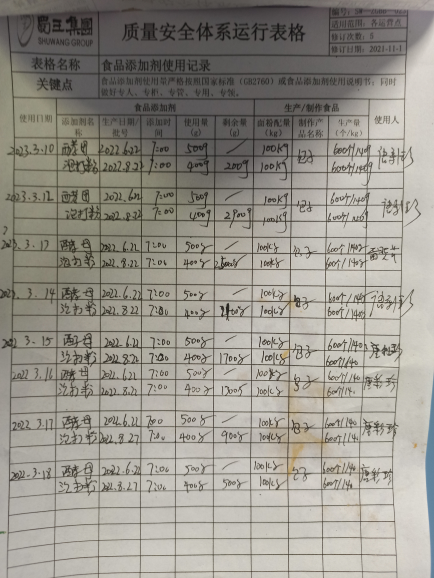 蜀王集团 质量安全体系运行表格
SHUWANG GROUP
适用范围:各运营点
修订次数:5
修订日期:2021-11-1
表格名称 食品添加剂使用记录
关键点 食品添加剂使用量严格按照国家标准(GB2760)或食品添加剂使用说明书;同时
做好专人、专柜、专管、专用、专领。
食品添加剂 生产/制作食品
使用日期 添加剂名称 生产日期/批号 添加时间 使用量(g) 剩余量(g) 面粉配量(kg) 制作产品名称 生产量(个/kg) 使用人
2023.3.10 酵母 2022.6.22 7:00 500g / 100kg 包子 600个/140g
泡打粉 2022.8.22 7:00 400g 200g 100kg 600个/140g
2023.3.12 酵母 2022.6.22 7:00 500g / 100kg 包子 600个/140g
泡打粉 2022.8.22 7:00 400g 2900g 100kg 600个/140g
3.13 酵母 2022.6.21 7:00 500g / 100kg 包子 600个/140g
泡打粉 2022.8.22 7:00 400g 2500g 100kg 600个/140g
3.14 酵母 2022.6.22 7:00 500g / 100kg 包子 600个/140g
泡打粉 2022.8.22 7:00 400g 100kg 600个/140g
3.15 酵母 2022.6.22 7:00 500g / 100kg 包子 600个/140g 唐彩珍
泡打粉 2022.8.22 7:00 400g 1700g 100kg 600个/140
2022.3.16 酵母 2022.6.21 7:00 500g / 100kg 包子 600个/140 唐彩珍
泡打粉 2022.8.22 7:00 400g 1300g 100kg 600个/140
2022.3.17 酵母 2022.6.21 7:00 500g / 100kg 包子 600个/140 唐彩珍
泡打粉 2022.8.27 7:00 400g 900g 100kg 600个/140
2022.3.18 酵母 2022.6.22 7:00 500g / 100kg 包子 600个/140 唐彩珍
泡打粉 2022.8.27 7:00 400g 500g 100kg 600个/140